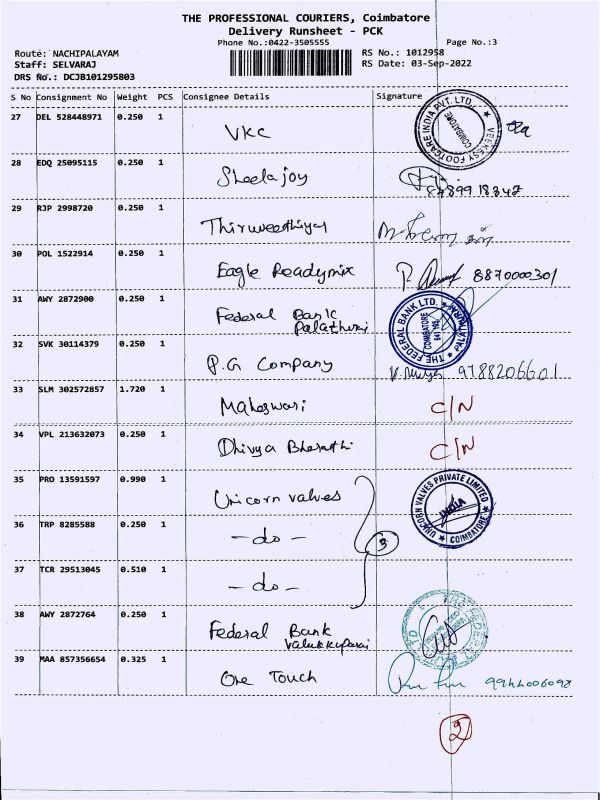 THE PROFESSIONAL COURIERS, Coimbatore
Delivery Runsheet - PCK
Phone No.:0422-3505555 Page No.:3
Route: NACHIPALAYAM RS No.: 1012958
Staff: SELVARAJ RS Date: 03-Sep-2022
DRS No.: DCJB101295803
S No Consignment No Weight PCS Consignee Details Signature
27 DEL 528448971 0.250 1 VKC
VEEKESY FOOTCARE INDIA PVT. LTD., COIMBATORE
28 EDQ 25095115 0.250 1 Sheela joy
29 RJP 2998720 0.250 1
30 POL 1522914 0.250 1 Eagle Readymix 8870000301
31 AWY 2872900 0.250 1 Federal Bank
Palathurai
THE FEDERAL BANK LTD. COIMBATORE
32 SVK 30114379 0.250 1 P.G Company 9788206601
33 SLM 302572857 1.720 1 Maheswari C/N
34 VPL 213632073 0.250 1 Dhivya Bharathi C/N
35 PRO 13591597 0.990 1 Unicorn valves
UNICORN VALVES PRIVATE LIMITED COIMBATORE INDIA
36 TRP 8285588 0.250 1 - do - 3
37 TCR 29513045 0.510 1 - do -
38 AWY 2872764 0.250 1 Federal Bank
39 MAA 857356654 0.325 1 One Touch 9944006098
2